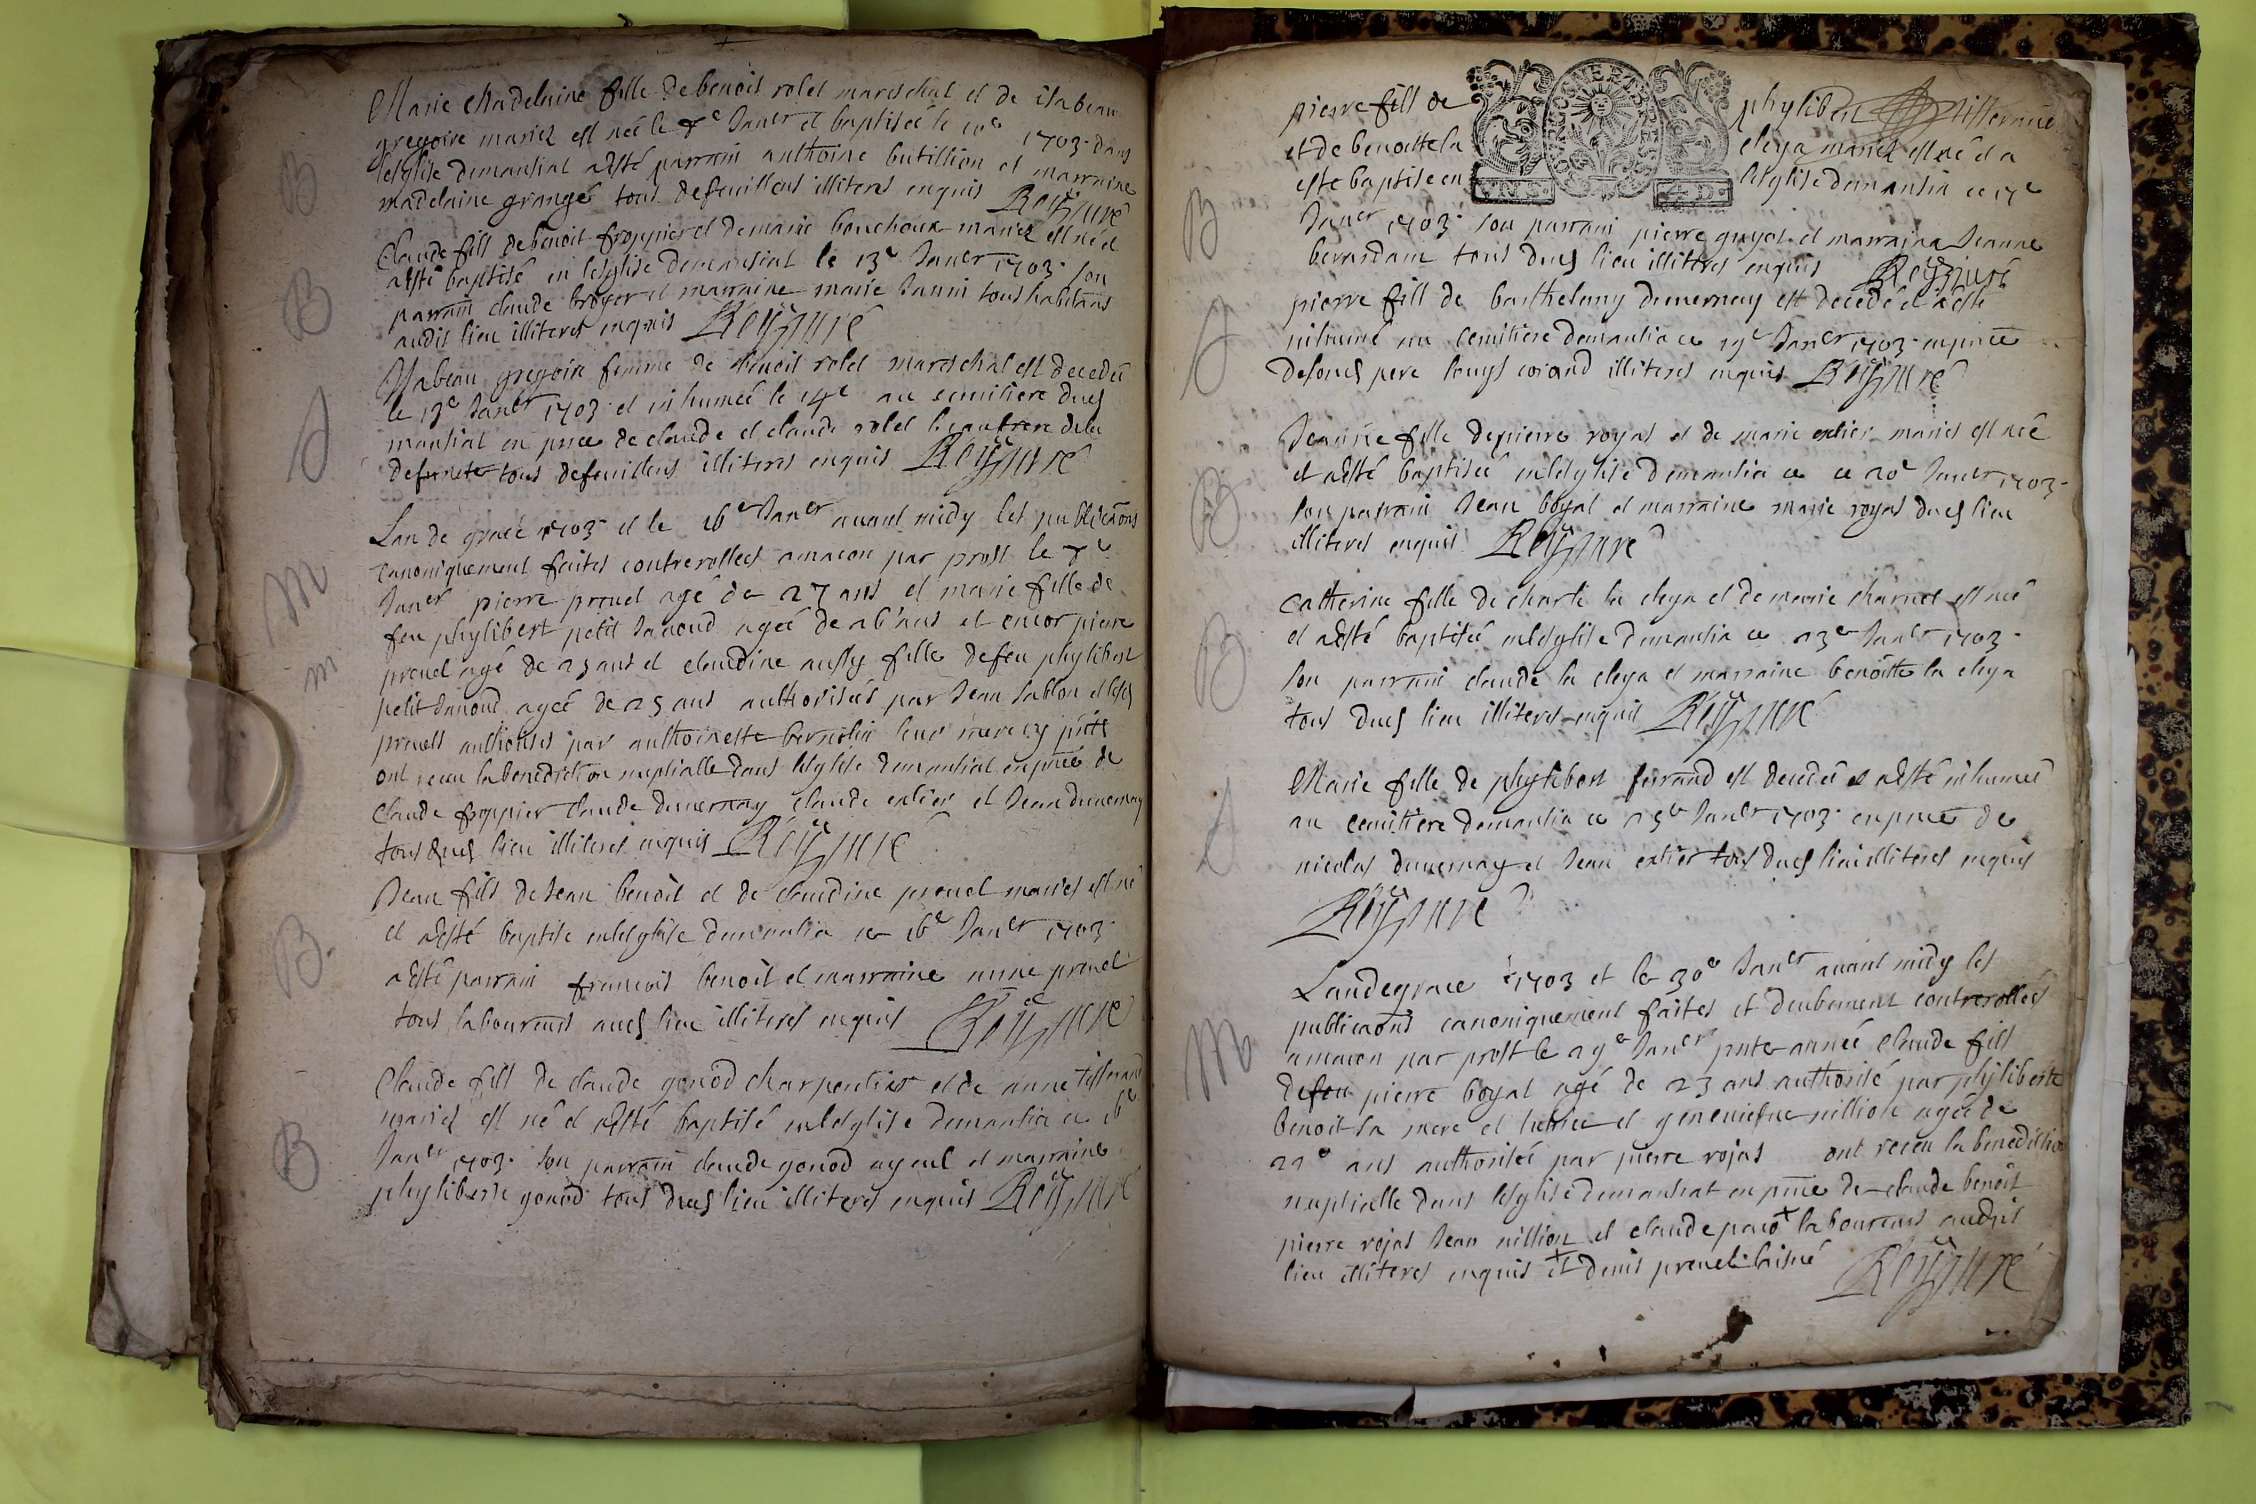 Marie Madelaine fille de benoit rolet mareschal et de isabeau
gregoire mariez est née le 7e Janer et baptisée le 10e 1703 dans
leglise demansiat a esté parrain anthoine butillion et marraine
madelaine grange tous defeuillens illiteres enquis Rey curé
B
Claude fils de benoit froppier et de marie bouchoux mariez est né et
a esté baptisé en leglise demansiat le 13e Janer 1703 son
parrain claude broyer et marraine marie Janin tous habitans
audit lieu illiteres enquis Rey curé
B
Isabeau gregoire femme de benoit rolet mareschal est decedée
le 13e Janer 1703 et inhumée le 14e au cemitiere dud
mansiat en pnce de claude et claude rolet beaufrere dela
defuncte tous defeuillens illiteres enquis Rey curé
Lan de grace 1703 et le 16e Janer avant midy les publicaons
canoniquement faites contrerollees amacon par prost le 7e
Janer pierre pruel agé de 27 ans et marie fille de
M
feu phylibert petit Janoud agée de 26 ans et encor pierre
pruel agé de 23 ans et claudine aussy fille defeu phylibert
m
petit Janoud agée de 25 ans authorisées par Jean Sablon et lesd
pruels authorisés par anthoinette bernolin leur mere cy pnte
ont receu la benediction nuptialle dans leglise demansiat en pnce de
Claude froppier claude duvernay claude entier et Jean duvernay
tous dud lieu illiteres enquis Rey curé
Jean fils de Jean benoit et de claudine pruel mariés est né
et a esté baptisé en leglise demansia ce 16e Janer 1703
B.
a esté parrain francois benoit et marraine anne pruel
tous laboureurs aud lieu illiteres enquis Rey curé
Claude fils de claude gonod charpentier et de anne tisserand
mariez est né et a esté baptisé en leglise demansia ce 16e
B
Janer 1703 son parrain claude gonod ayeul et marraine
phyliberte gonod tous dud lieu illiteres enquis Rey curé
pierre fils de phylibert tisserand
et de benoitte la cleya mariez est né et a
este baptise en leglise demansia ce 17e
B
Janer 1703 son parrain pierre guyot et marraine Jeanne
berardan tous dud lieu illiteres enquis Rey curé
pierre fils de barthelemy duvernay est decedé et a esté
inhumé au cemitiere demansia ce 19e Janer 1703 en pnce
desond pere louys coiand illiteres enquis Rey curé
Jeanne fille de pierre royas et de marie entier mariés est née
et a esté baptisée en leglise demansia ce ce 20e Janer 1703
B
son parrain Jean boyat et marraine marie royas dud lieu
illiteres enquis Rey curé
Catherine fille de charle la cleya et de marie charnet est née
et a esté baptisée en leglise demansia ce 23e Janer 1703
B
son parrain claude la cleya et marraine benoitte la cleya
tous dud lieu illiteres enquis Rey curé
Marie fille de phylibert ferrand est decedée et a esté inhumée
au cemitiere demansia ce 25e Janer 1703 en pnce de
nicolas duvernay et Jean entier tous dud lieu illiteres enquis
Rey curé
Lan de grace 1703 et le 30e Janer avant midy les
publicaons canoniquement faites et deubement contrerollées
M
amacon par prost le 29e Janer pnte année Claude fils
defeu pierre boyat agé de 23 ans authorisé par phyliberte
benoit sa mere et geneviefve nillion agée de
22e ans authorisée par pierre rojas ont receu la benediction
nuptialle dans leglise demansiat en pnce de claude benoit
pierre rojas Jean nillion et claude pao + laboureurs audit
lieu illiteres enquis + et denis pruel laisné Rey curé